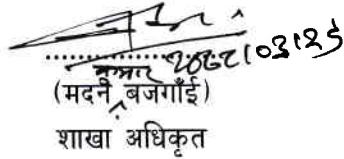 कुमार २०८२।०३।२५
(मदन बजगाँई)
शाखा अधिकृत